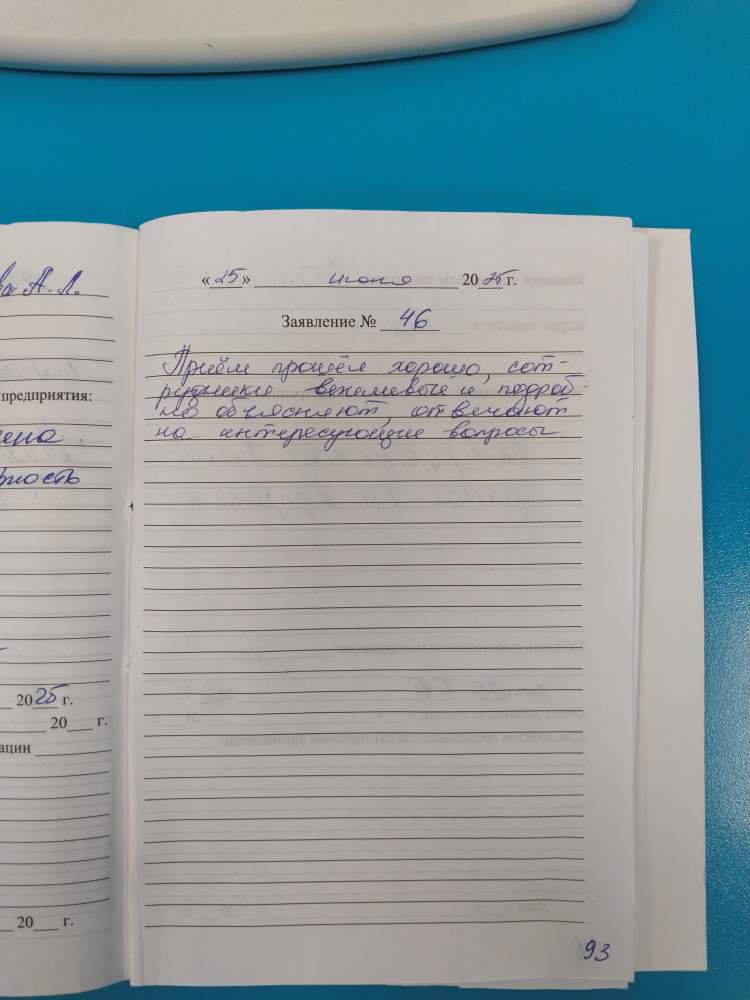 А. Л.
предприятия:
20 25 г.
20 г.
ации
20 г.
« 25 » июня 20 25 г.
Заявление № 46
Приём прошёл хорошо, сот-
рудники вежливые и подроб-
но объясняют, отвечают
на интересующие вопросы.
93